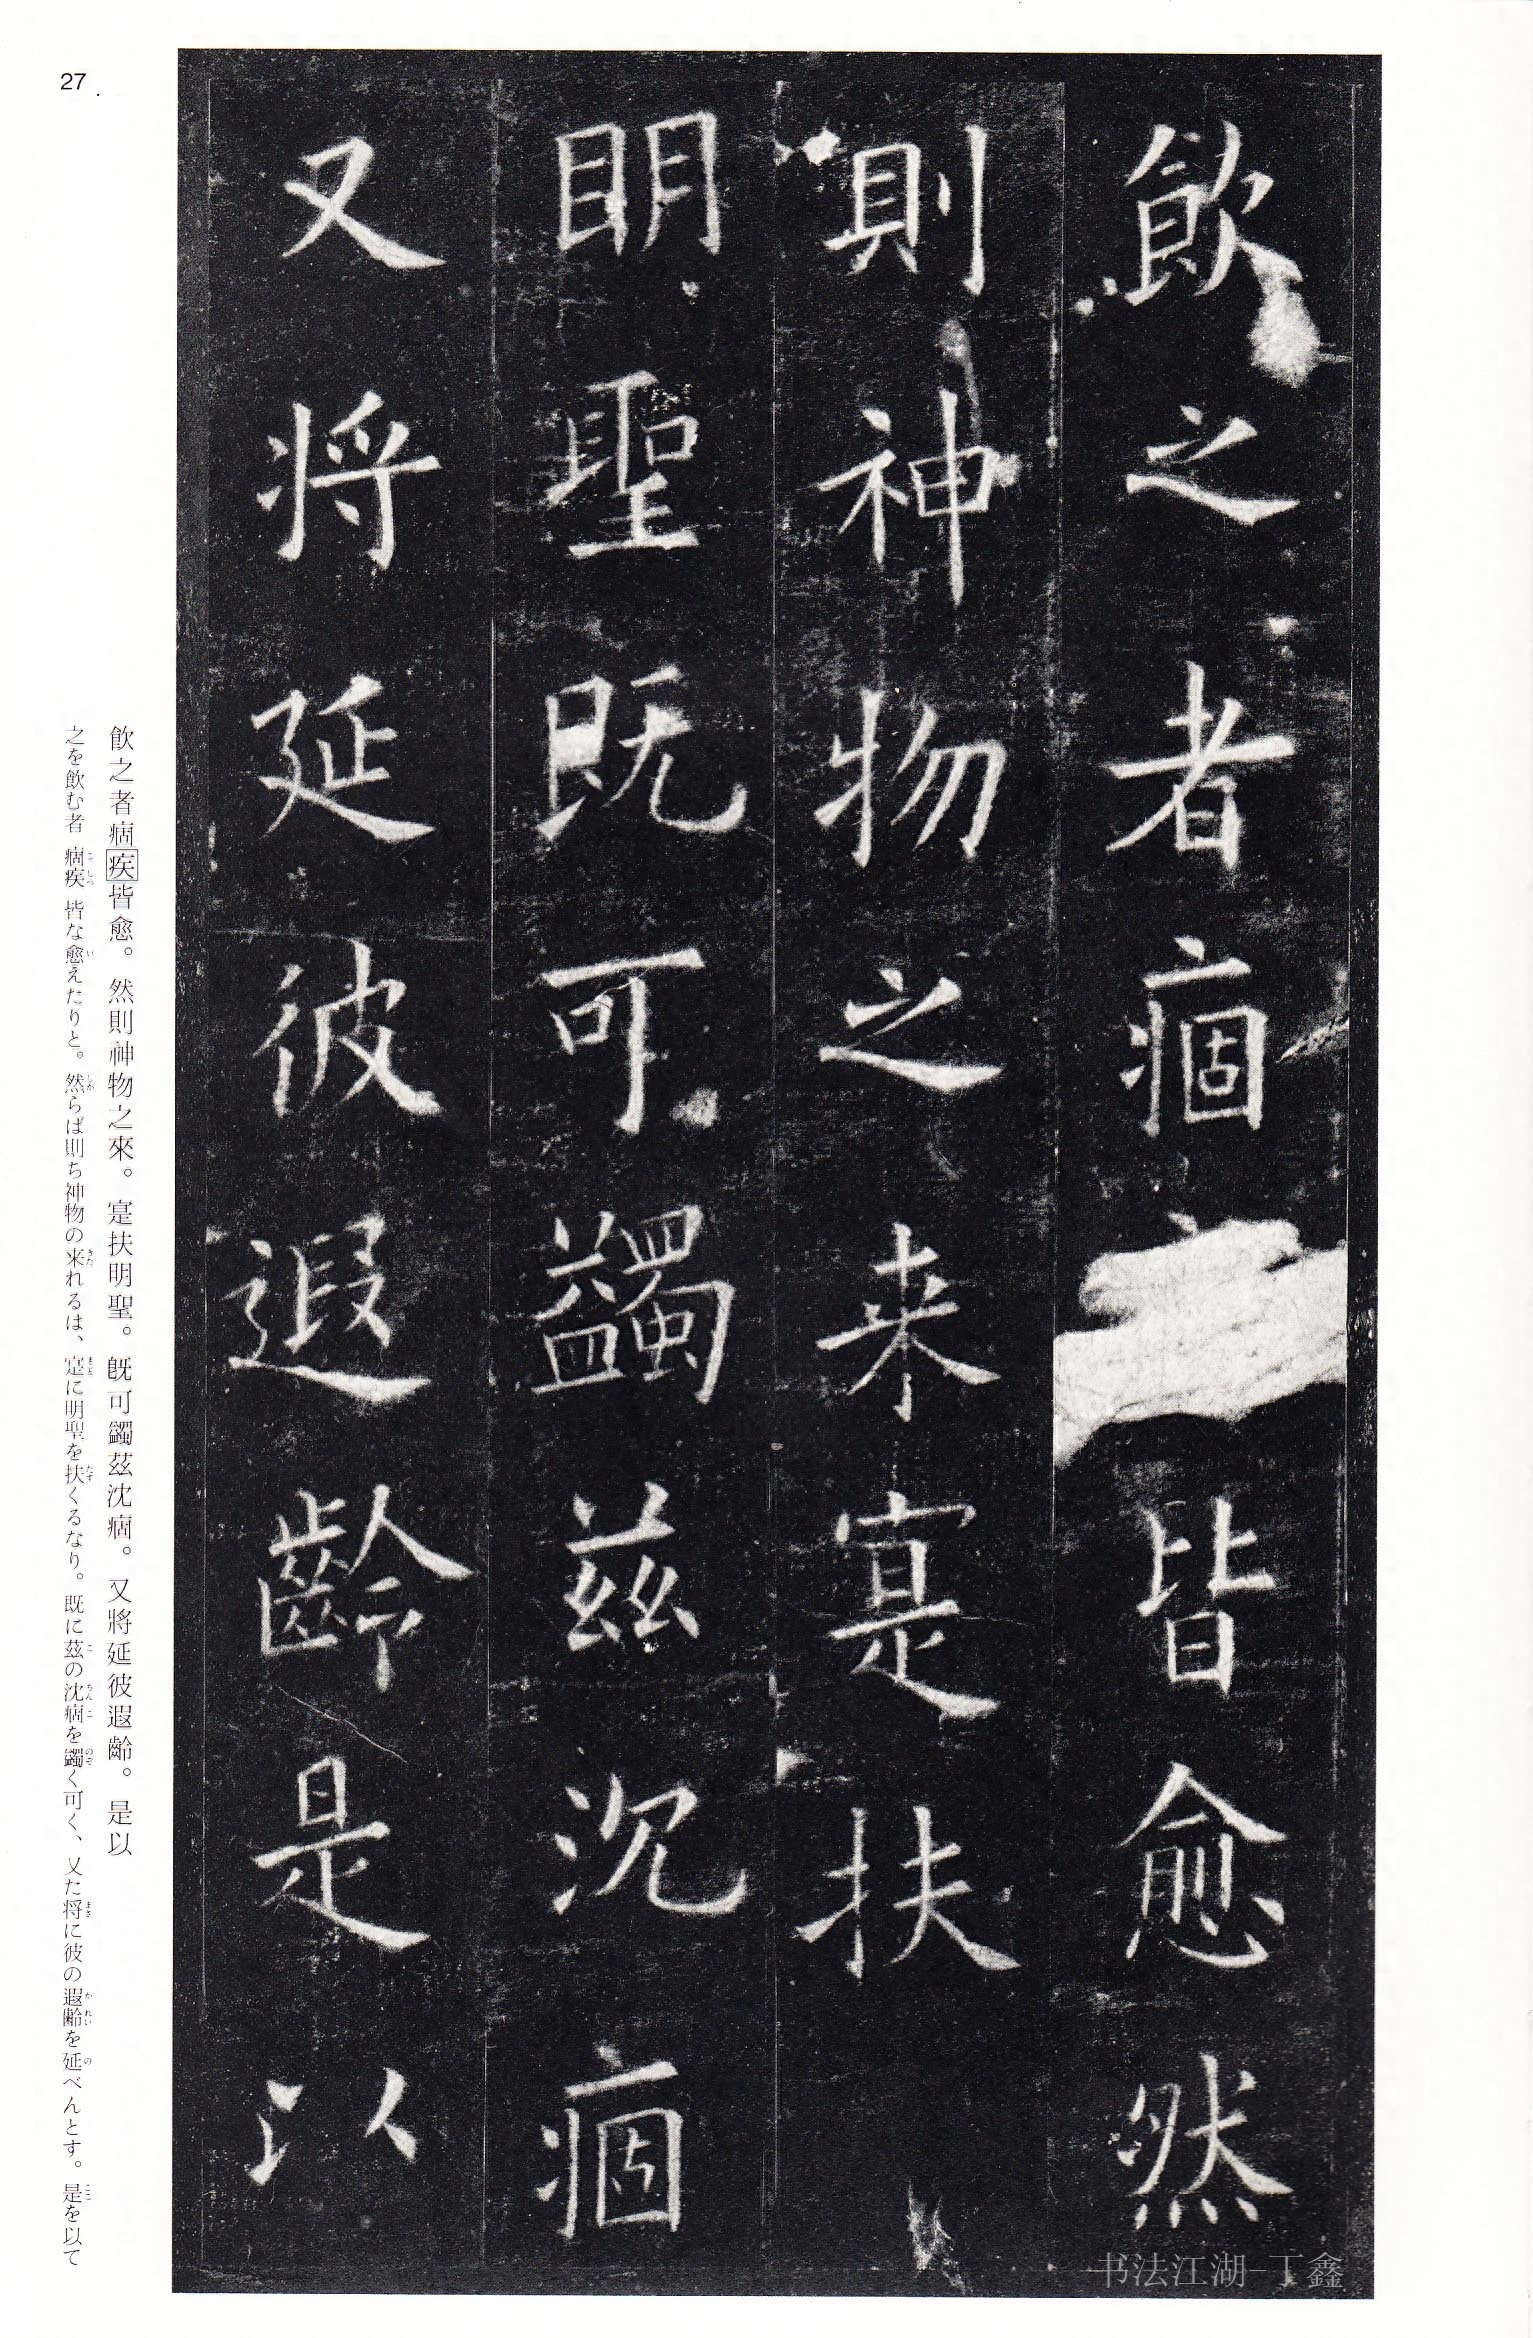 27
飲之者痼皆愈然
則神物之来寔扶
明聖既可蠲茲沉痼
又将延彼遐齡是以
飲之者痼疾皆愈。然則神物之來。寔扶明聖。既可蠲茲沈痼。又將延彼遐齡。是以
之を飲む者痼疾皆な愈えたりと。然らば則ち神物の来れるは、寔に明聖を扶くるなり。既に茲の沈痼を蠲く可く、又た将に彼の遐齡を延べんとす。是を以て
书法江湖-丁鑫